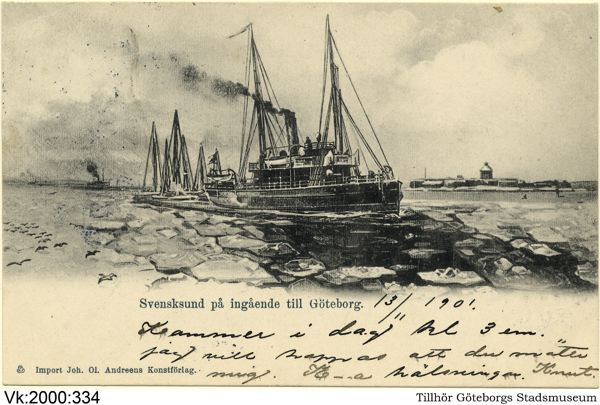 Svensksund på ingående till Göteborg. 13/11 1901.
Kommer i dag kl 3 em.
jag vill hoppas att du möter
mig. H-a hälsningar. Knut.
Import Joh. Ol. Andreens Konstförlag.
Vk:2000:334
Tillhör Göteborgs Stadsmuseum